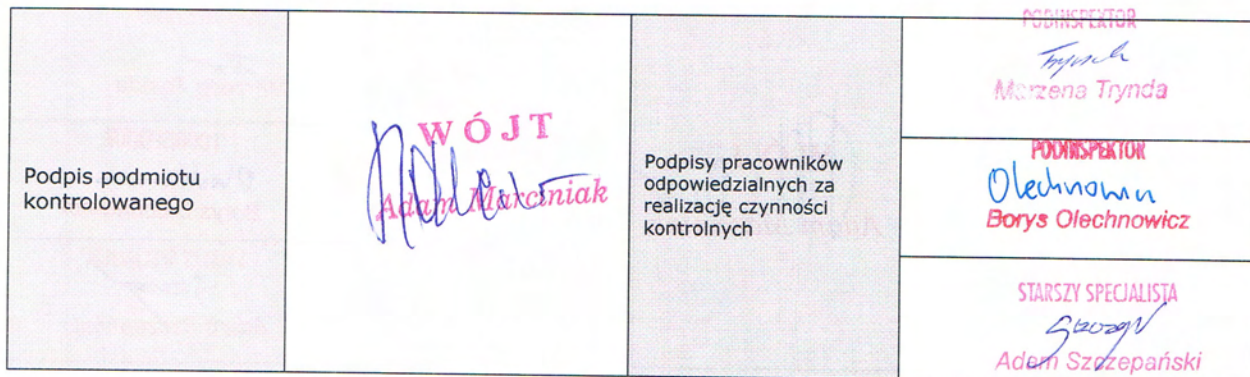 Podpis podmiotu
kontrolowanego
WÓJT
Adam Marciniak
Podpisy pracowników
odpowiedzialnych za
realizację czynności
kontrolnych
PODINSPEKTOR
Marzena Trynda
PODINSPEKTOR
Borys Olechnowicz
STARSZY SPECJALISTA
Adam Szczepański